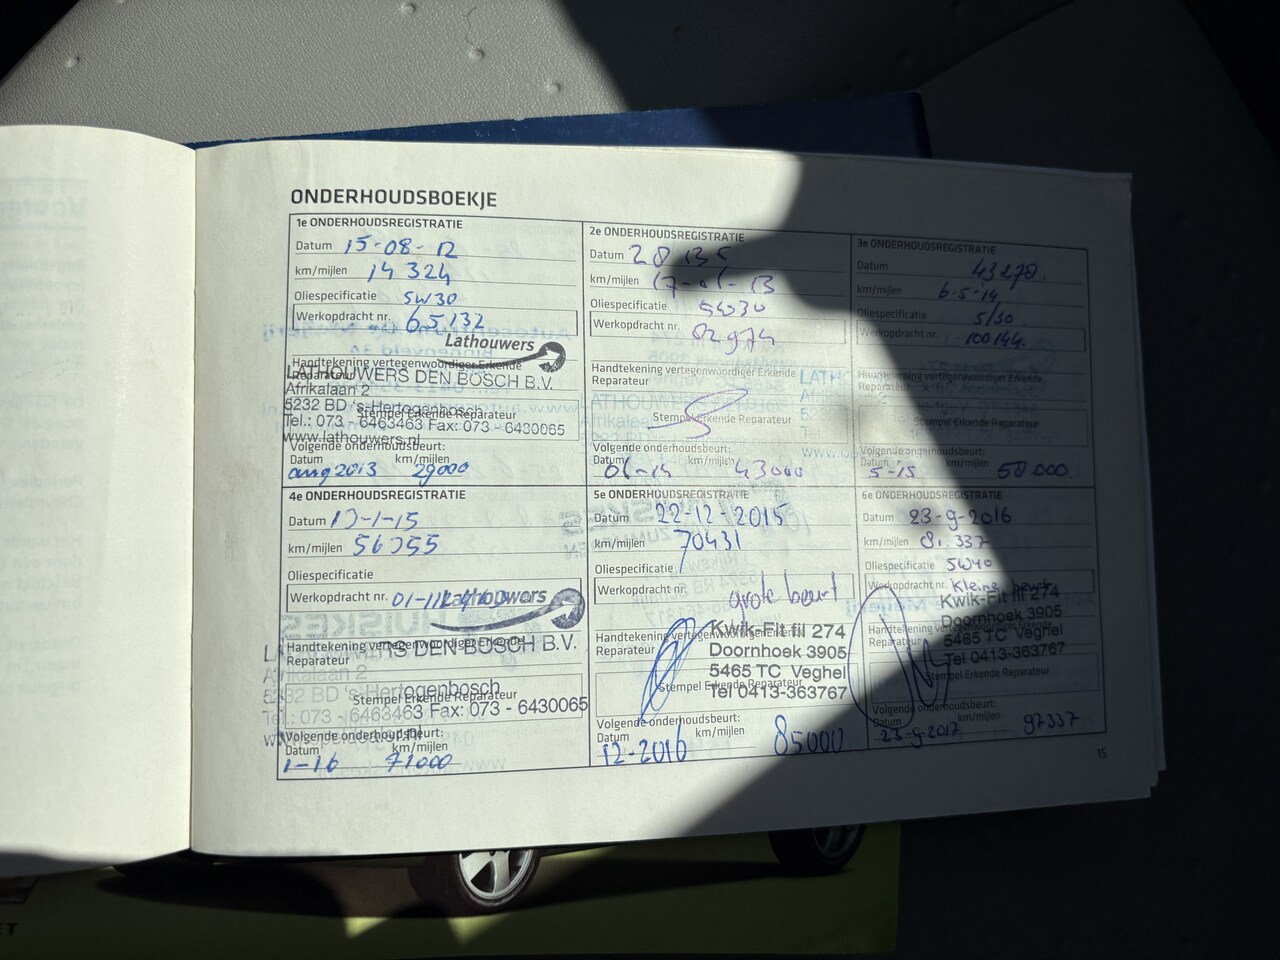 ONDERHOUDSBOEKJE
1e ONDERHOUDSREGISTRATIE
Datum 15-08-12
km/mijlen 14 324
Oliespecificatie 5W30
Werkopdracht nr. 65132
Lathouwers
Handtekening vertegenwoordiger Erkende
Reparateur
LATHOUWERS DEN BOSCH B.V.
Afrikalaan 2
5232 BD 's-Hertogenbosch
Stempel Erkende Reparateur
Tel.: 073 - 6463463 Fax: 073 - 6430065
www.lathouwers.nl
Volgende onderhoudsbeurt:
Datum km/mijlen
aug 2013 29000
2e ONDERHOUDSREGISTRATIE
Datum 28 135
km/mijlen 17-01-13
Oliespecificatie 5W30
Werkopdracht nr. 82974
Handtekening vertegenwoordiger Erkende
Reparateur
Stempel Erkende Reparateur
Volgende onderhoudsbeurt:
Datum km/mijlen
43000
3e ONDERHOUDSREGISTRATIE
Datum 43278.
km/mijlen 6-5-14
Oliespecificatie 5/30
Werkopdracht nr. 100144.
Handtekening vertegenwoordiger Erkende
Reparateur
Stempel Erkende Reparateur
Volgende onderhoudsbeurt:
Datum km/mijlen
5-15 58000
4e ONDERHOUDSREGISTRATIE
Datum 13-1-15
km/mijlen 56355
Oliespecificatie
Werkopdracht nr.
Lathouwers
Handtekening vertegenwoordiger Erkende
Reparateur
LATHOUWERS DEN BOSCH B.V.
Afrikalaan 2
5232 BD 's-Hertogenbosch
Stempel Erkende Reparateur
Tel.: 073 - 6463463 Fax: 073 - 6430065
Volgende onderhoudsbeurt:
Datum km/mijlen
1-16 71000
5e ONDERHOUDSREGISTRATIE
Datum 22-12-2015
km/mijlen 70431
Oliespecificatie
Werkopdracht nr.
grote beurt
Handtekening vertegenwoordiger Erkende
Reparateur
Kwik-Fit fil 274
Doornhoek 3905
5465 TC Veghel
Stempel Erkende Reparateur
Tel 0413-363767
Volgende onderhoudsbeurt:
Datum km/mijlen
12-2016 85000
6e ONDERHOUDSREGISTRATIE
Datum 23-9-2016
km/mijlen 81.337
Oliespecificatie 5W40
Werkopdracht nr. Kleine beurt
Kwik-Fit fil 274
Doornhoek 3905
Handtekening vertegenwoordiger Erkende
Reparateur
5465 TC Veghel
Tel 0413-363767
Stempel Erkende Reparateur
Volgende onderhoudsbeurt:
Datum km/mijlen
23-9-2017 97337
15